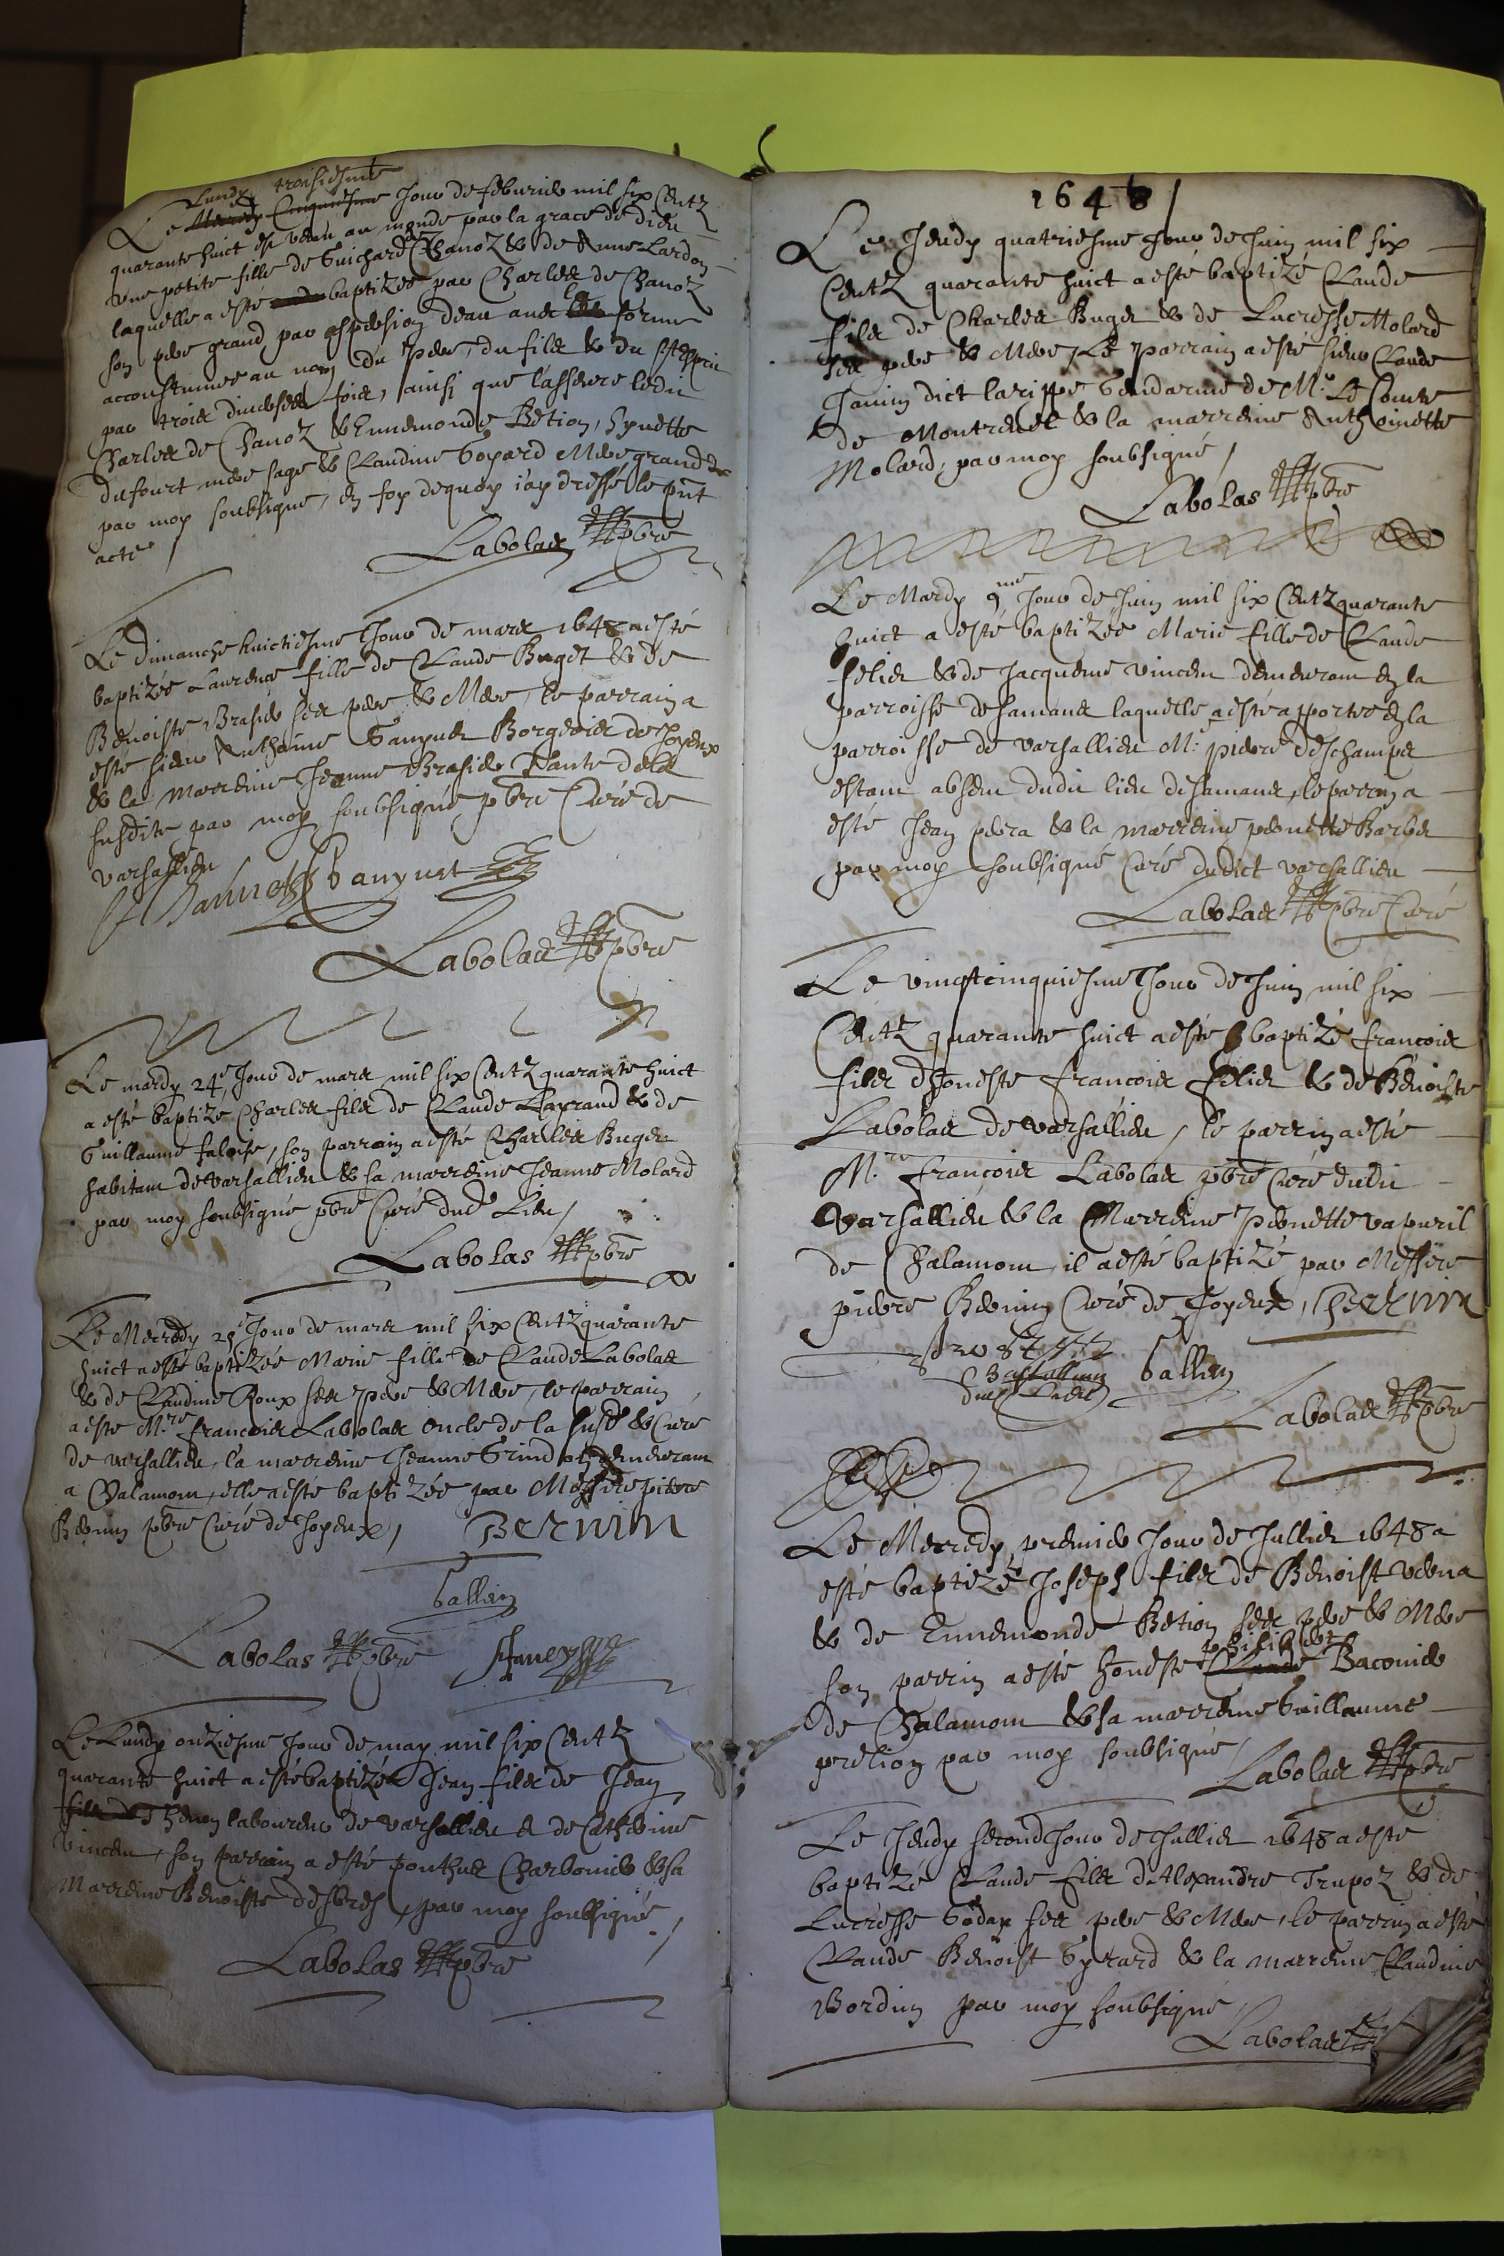 Lundy troisiesme
Le Jour de febvrier mil six Centz
quarante huict est venu au monde par la grace de dieu
une petite fille de Guichard Chanoz & de Anne Lardon
laquelle a esté baptizée par Charles de Chanoz
son pere grand par aspersion deau avec la forme
accoustumee au nom du Pere, du filz & du st esprit
par trois diverses fois, ainsi que lasseure ledit
Charles de Chanoz & Ennemonde Betion, Hynette
dufourt mere sage & Claudine Goyard Mere grand
par moy soubsigné, en foy dequoy i'ay dressé le pnt
acte /
Labolas pbre
Le dimanche huictiesme Jour de mars 1648 a esté
baptizée Laurence fille de Claude Buget & de
Benoiste Brasier ses pere & Mere, le parrain a
esté sieur Anthoine Ganyuet Borgeois de Joyeux
& la marreine Jeanne Brasier Tante de la
susdite par moy soubsigné pbre Curé de
varsallieu
Labolas pbre
Le mardy 24e Jour de mars mil six Centz quarante huict
a esté baptizé Charles filz de Claude Layrand & de
Guillaume falaise, son parrain a esté Charles Buget
habitant de varsallieu & sa marreine Jeanne Molard
par moy soubsigné pbre Curé dud Lieu /
Labolas pbre
Le Mecredy 25e Jour de mars mil six Centz quarante
huict a esté baptizée Marie fille de Claude Labolas
& de Claudine Roux ses Pere & Mere, le parrain
a esté Mre françois Labolas oncle de la susd & Curé
de varsallieu, la marreine Jeanne Grindon demeurant
a Chalamont, elle a esté baptizée par Messire pierre
Bernin pbre Curé de Joyeux / Bernin
Gallien
Labolas pbre
Le Lundy onziesme Jour de may mil six Centz
quarante huict a esté baptizé Jean filz de Jean
Thenon laboureur de varsallieu et de Catherine
vincent, son parrain a esté ponthus Charbonier & sa
Marreine Benoiste desbres, par moy soubsigné /
Labolas pbre
1648 /
Le Jeudy quatriesme Jour de Juin mil six
Centz quarante huict a esté baptizé Claude
filz de Charles Buget & de Lucresse Molard
ses pere & Mere, Le parrain a esté sieur Claude
Janin dict larippe Gendarme de Mr Le Comte
de Montrevel & la marreine Anthoinette
Molard, par moy soubsigné /
Labolas pbre
Le Mardy 9me Jour de Juin mil six Centz quarante
huict a esté baptizée Marie fille de Claude
felix & de Jacqueme vincent demeurant en la
parroisse de samans laquelle a esté apportee en la
parroisse de varsallieu Mr pierre deschamps
estant absent dudit lieu de samans, le parrin a
esté Jean pera & la marreine pernette Barbet
par moy soubsigné Curé dudict varsallieu
Labolas pbre Curé
Le vingtcinquiesme Jour de Juin mil six
Centz quarante huict a esté baptizé françois
filz d'honeste françois felix & de Benoiste
Labolas de varsallieu, le parrin a esté
Mre françois Labolas pbre Curé dudit
varsallieu & la Marreine Pernette vapuril
de Chalamont, il a esté baptizé par Messire
pierre Bernin Curé de Joyeux, Bernin
Gallien
Labolas pbre
Le Mecredy premier Jour de Juillet 1648 a
esté baptizé Joseph filz de Benoist verna
& de Ennemonde Betion ses pere & Mere
son parrin a esté honeste Philibert Baconier
de Chalamont & sa marreine Guillaume
prelion par moy soubsigné /
Labolas pbre
Le Jeudy second Jour de Juillet 1648 a esté
baptizé Claude filz d'Alexandre Trupoz & de
Lucresse Goday ses pere & Mere, le parrin a esté
Claude Benoist Gyrard & la marreine Claudine
Bordin par moy soubsigné /
Labolas